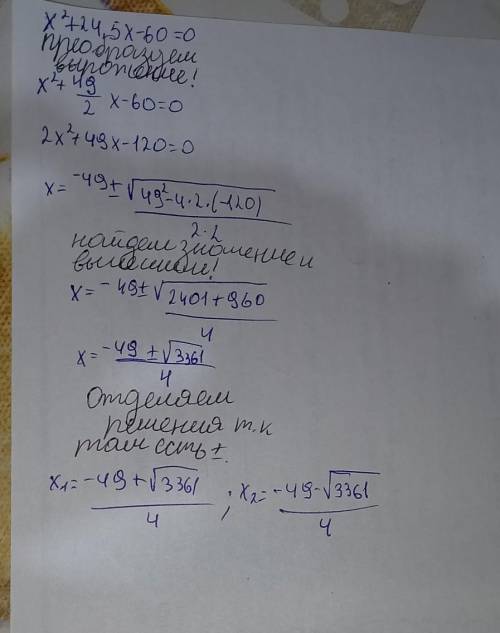 x²+24,5x-60=0
преобразуем
выражение!
x²+49/2 x-60=0
2x²+49x-120=0
x= -49±√49²-4·2·(-120) / 2·2
найдем значение и
x= -49±√2401+960 / 4
x= -49±√3361 / 4
Отделяем
решения т.к
там есть ±.
x₁= -49+√3361 / 4 ; x₂= -49-√3361 / 4